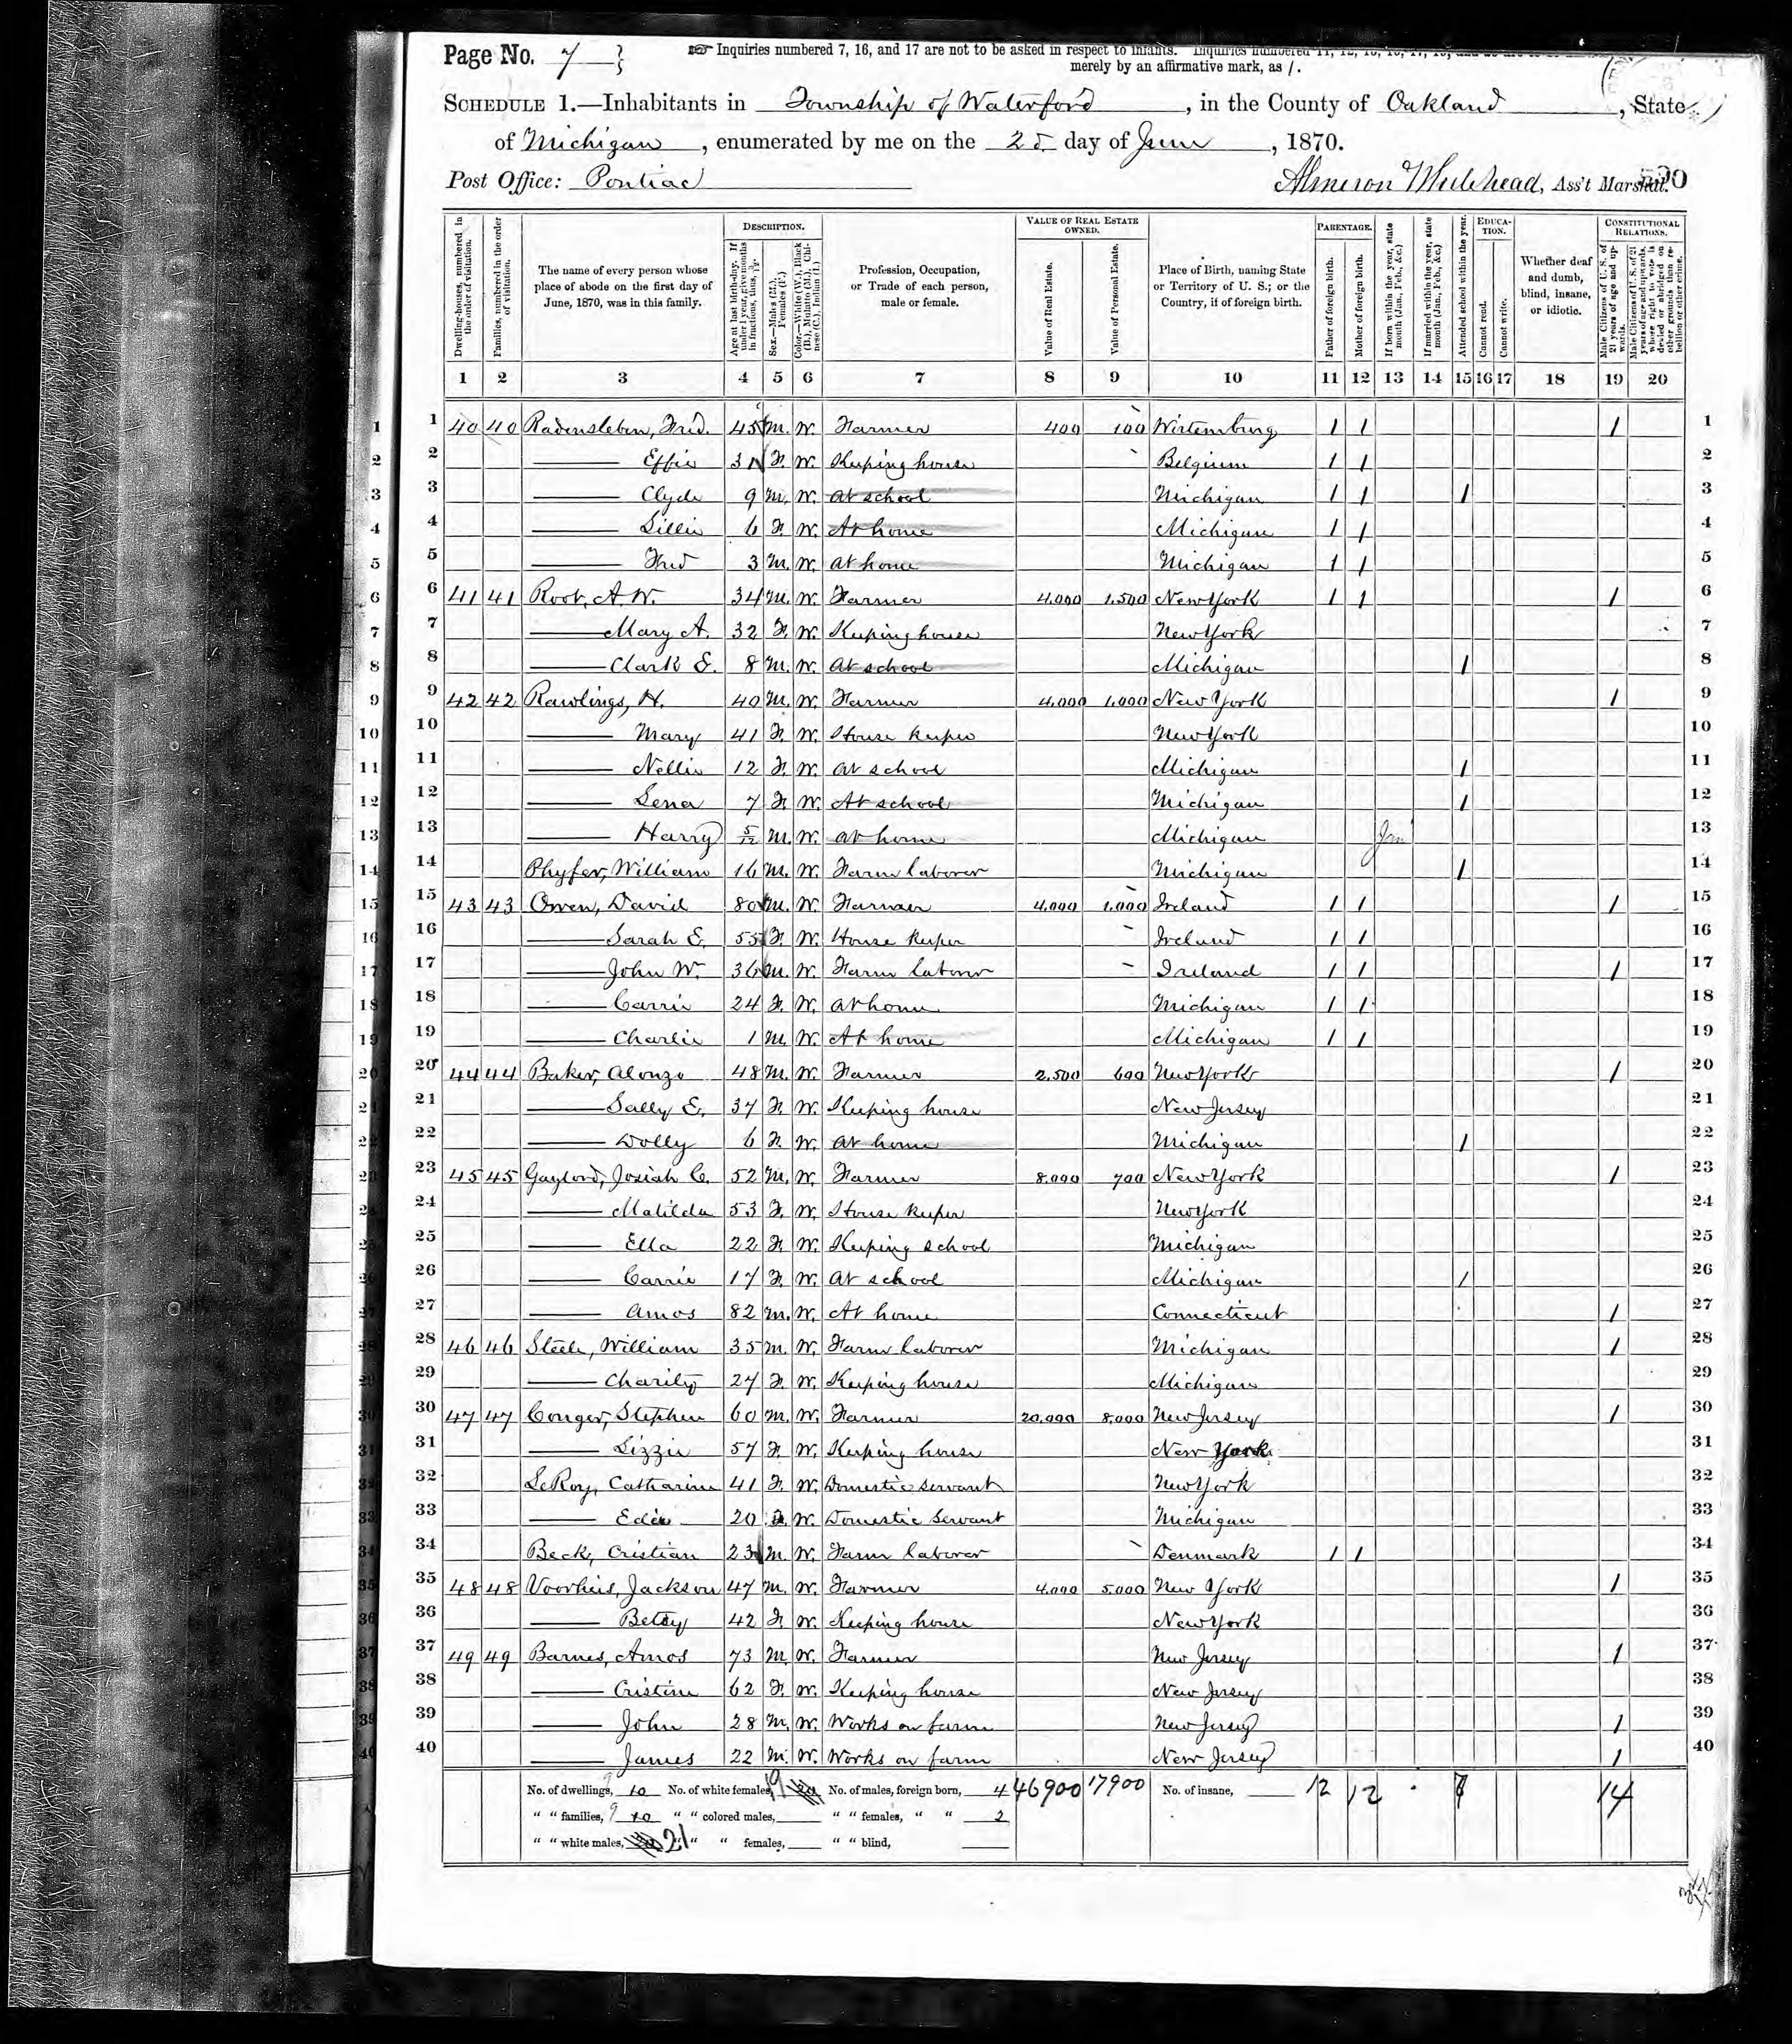 Page No. 7
Inquiries numbered 7, 16, and 17 are not to be asked in respect to infants.
merely by an affirmative mark, as /.
SCHEDULE 1.—Inhabitants in Township of Waterford, in the County of Oakland, State
of Michigan, enumerated by me on the 25 day of June, 1870.
Post Office: Pontiac
Almeron Whitehead, Ass't Marshal.
DESCRIPTION. VALUE OF REAL ESTATE OWNED. PARENTAGE. EDUCATION. CONSTITUTIONAL RELATIONS.
Dwelling-houses, numbered in the order of visitation.
Families, numbered in the order of visitation.
The name of every person whose place of abode on the first day of June, 1870, was in this family.
Age at last birth-day. If under 1 year, give months in fractions, thus, 3/12
Sex.—Males (M.), Females (F.)
Color.—White (W.), Black (B.), Mulatto (M.), Chinese (C.), Indian (I.)
Profession, Occupation, or Trade of each person, male or female.
Value of Real Estate.
Value of Personal Estate.
Place of Birth, naming State or Territory of U. S.; or the Country, if of foreign birth.
Father of foreign birth.
Mother of foreign birth.
If born within the year, state month (Jan., Feb., &c.)
If married within the year, state month (Jan., Feb., &c.)
Attended school within the year.
Cannot read.
Cannot write.
Whether deaf and dumb, blind, insane, or idiotic.
Male Citizens of U. S. of 21 years of age and upwards.
Male Citizens of U. S. of 21 years of age and upwards, where right to vote is denied or abridged on other grounds than rebellion or other crime.
1 2 3 4 5 6 7 8 9 10 11 12 13 14 15 16 17 18 19 20
1 40 40 Radensleben, Fred. 45 M. W. Farmer 400 100 Wirtemburg / / / 1
2 —— Effie 31 F. W. Keeping house Belgium / / 2
3 —— Clyde 9 M. W. At school Michigan / / / 3
4 —— Lillie 6 F. W. At home Michigan / / 4
5 —— Fred 3 M. W. At home Michigan / / 5
6 41 41 Root, A. W. 34 M. W. Farmer 4,000 1,500 New York / / / 6
7 —— Mary A. 32 F. W. Keeping house New York 7
8 —— Clark E. 8 M. W. At school Michigan / 8
9 42 42 Rawlings, H. 40 M. W. Farmer 4,000 1,000 New York / 9
10 —— Mary 41 F. W. House keeper New York 10
11 —— Nellie 12 F. W. At school Michigan / 11
12 —— Lena 7 F. W. At school Michigan / 12
13 —— Harry 5/12 M. W. At home Michigan Jan 13
14 Phyfer, William 16 M. W. Farm laborer Michigan / 14
15 43 43 Owen, David 80 M. W. Farmer 4,000 1,000 Ireland / / / 15
16 —— Sarah E. 55 F. W. House keeper Ireland / / 16
17 —— John W. 36 M. W. Farm laborer Ireland / / / 17
18 —— Carrie 24 F. W. At home Michigan / / 18
19 —— Charlie 1 M. W. At home Michigan / / 19
20 44 44 Baker, Alonzo 48 M. W. Farmer 2,500 600 New York / 20
21 —— Sally E. 37 F. W. Keeping house New Jersey 21
22 —— Dolly 6 F. W. At home Michigan / 22
23 45 45 Gaylord, Josiah C. 52 M. W. Farmer 8,000 700 New York / 23
24 —— Matilda 53 F. W. House keeper New York 24
25 —— Ella 22 F. W. Keeping school Michigan 25
26 —— Carrie 17 F. W. At school Michigan / 26
27 —— Amos 82 M. W. At home Connecticut / 27
28 46 46 Steele, William 35 M. W. Farm laborer Michigan / 28
29 —— Charity 27 F. W. Keeping house Michigan 29
30 47 47 Conger, Stephen 60 M. W. Farmer 20,000 8,000 New Jersey / 30
31 —— Lizzie 57 F. W. Keeping house New York 31
32 LeRoy, Catharine 41 F. W. Domestic servant New York 32
33 —— Edie 20 F. W. Domestic Servant Michigan 33
34 Beck, Cristian 23 M. W. Farm laborer Denmark / / 34
35 48 48 Voorheis, Jackson 47 M. W. Farmer 4,000 5,000 New York / 35
36 —— Betsy 42 F. W. Keeping house New York 36
37 49 49 Barnes, Amos 73 M. W. Farmer New Jersey / 37
38 —— Cristine 62 F. W. Keeping house New Jersey 38
39 —— John 28 M. W. Works on farm New Jersey / 39
40 —— James 22 M. W. Works on farm New Jersey / 40
No. of dwellings, 9 10 No. of white females, 19 20 No. of males, foreign born, 4 46900 17900 No. of insane, 12 12 14
" " families, 9 10 " " colored males, " " females, " " 2
" " white males, 20 21 " " females, " " blind,